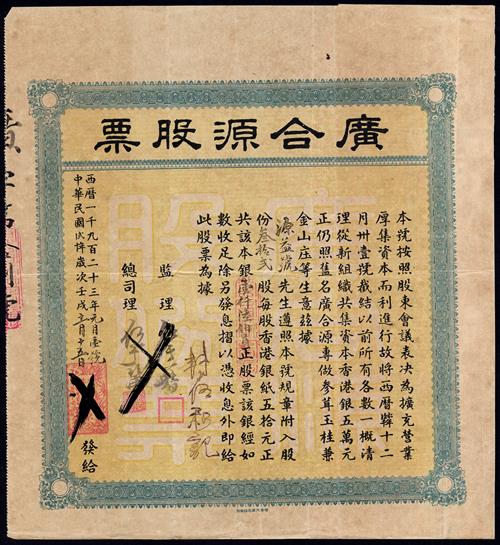 廣合源股票
本號按照股東會議表决為擴充營業
厚集資本而利進行故將西曆十二
月卅壹號截結以前所有各數一概清
理從新組織共集資本香港銀五萬元
正仍照舊名廣合源專做參茸玉桂兼
金山庄等生意茲據
源益號先生遵照本號規章附入股
份叁拾貳股每股香港銀紙五十元正
共該本銀壹仟陸佰員股票該銀經如
數收足除另發息摺以憑收息外即給
此股票為據
監理
總司理
西曆一千九百二十三年元月壹號
中華民國年歲次壬戌月十五日
發給